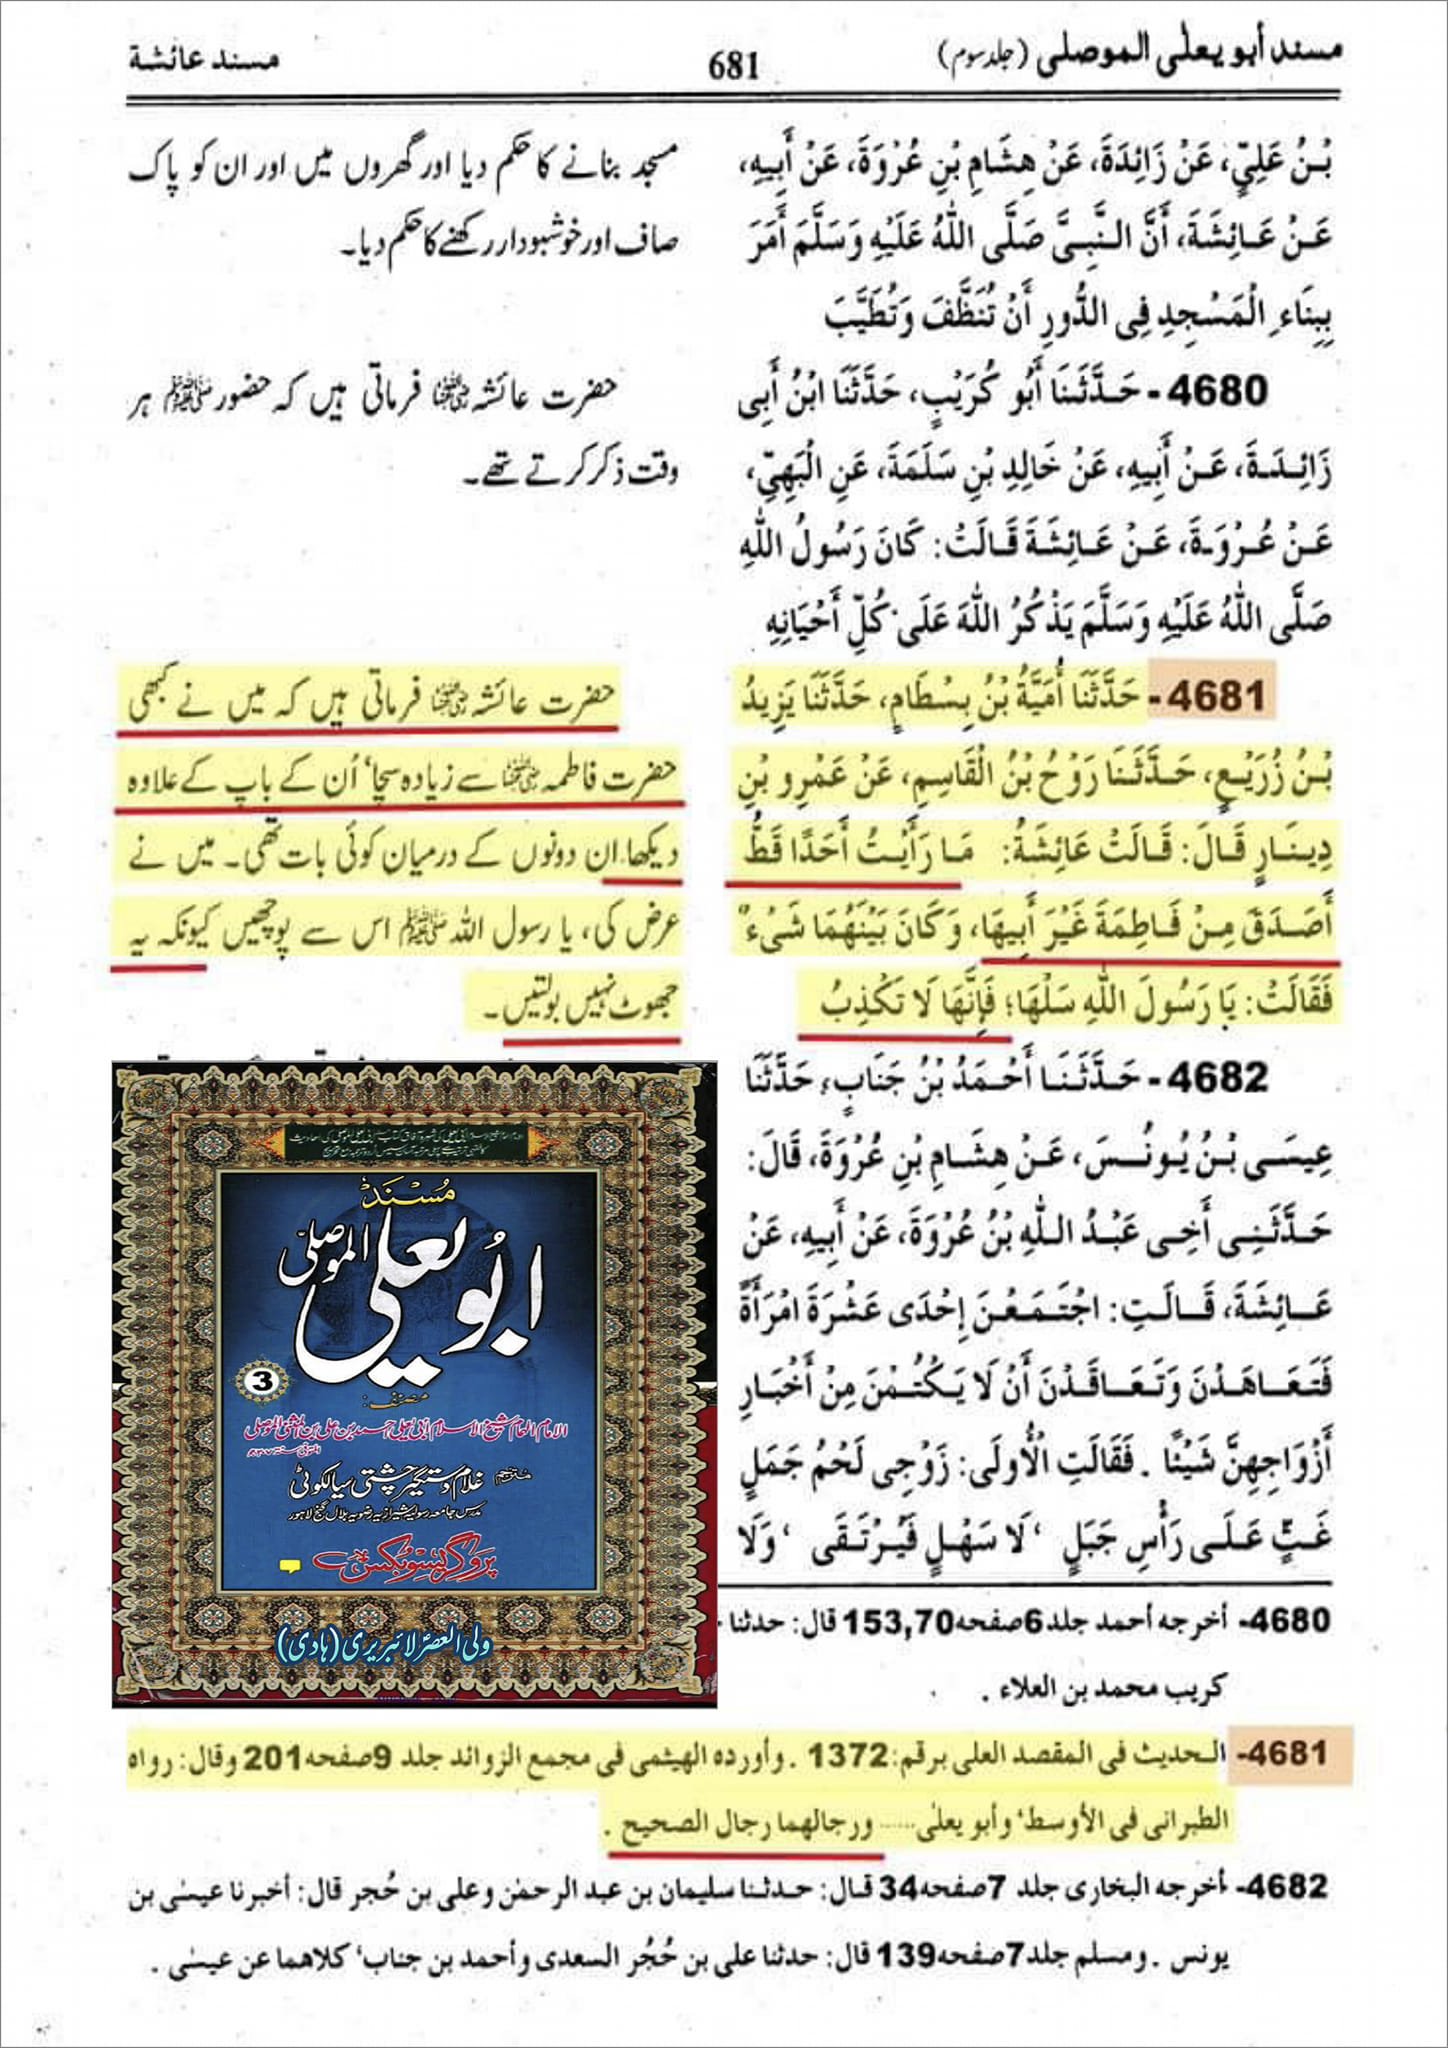 مسند أبو يعلى الموصلى (جلد سوم)
681
مسند عائشة
بْنُ عَلِيٍّ، عَنْ زَائِدَةَ، عَنْ هِشَامِ بْنِ عُرْوَةَ، عَنْ أَبِيهِ،
عَنْ عَائِشَةَ، أَنَّ النَّبِىَّ صَلَّى اللّٰهُ عَلَيْهِ وَسَلَّمَ أَمَرَ
بِبِنَاءِ الْمَسْجِدِ فِى الدُّورِ أَنْ تُنَظَّفَ وَتُطَيَّبَ
4680- حَدَّثَنَا أَبُو كُرَيْبٍ، حَدَّثَنَا ابْنُ أَبِى
زَائِدَةَ، عَنْ أَبِيهِ، عَنْ خَالِدِ بْنِ سَلَمَةَ، عَنِ الْبَهِيِّ،
عَنْ عُرْوَةَ، عَنْ عَائِشَةَ قَالَتْ: كَانَ رَسُولُ اللّٰهِ
صَلَّى اللّٰهُ عَلَيْهِ وَسَلَّمَ يَذْكُرُ اللّٰهَ عَلَى كُلِّ أَحْيَانِهِ
4681- حَدَّثَنَا أُمَيَّةُ بْنُ بِسْطَامٍ، حَدَّثَنَا يَزِيدُ
بْنُ زُرَيْعٍ، حَدَّثَنَا رَوْحُ بْنُ الْقَاسِمِ، عَنْ عَمْرِو بْنِ
دِينَارٍ قَالَ: قَالَتْ عَائِشَةُ: مَا رَأَيْتُ أَحَدًا قَطُّ
أَصْدَقَ مِنْ فَاطِمَةَ غَيْرَ أَبِيهَا، وَكَانَ بَيْنَهُمَا شَىْءٌ
فَقَالَتْ: يَا رَسُولَ اللّٰهِ سَلْهَا؛ فَإِنَّهَا لَا تَكْذِبُ
4682- حَدَّثَنَا أَحْمَدُ بْنُ جَنَابٍ، حَدَّثَنَا
عِيسَى بْنُ يُونُسَ، عَنْ هِشَامِ بْنِ عُرْوَةَ، قَالَ:
حَدَّثَنِى أَخِى عَبْدُ اللّٰهِ بْنُ عُرْوَةَ، عَنْ أَبِيهِ، عَنْ
عَائِشَةَ، قَالَتِ: اجْتَمَعْنَ إِحْدَى عَشْرَةَ امْرَأَةً
فَتَعَاهَدْنَ وَتَعَاقَدْنَ أَنْ لَا يَكْتُمْنَ مِنْ أَخْبَارِ
أَزْوَاجِهِنَّ شَيْئًا . فَقَالَتِ الْأُولَى: زَوْجِى لَحْمُ جَمَلٍ
غَثٍّ عَلَى رَأْسِ جَبَلٍ ‘ لَا سَهْلٍ فَيُرْتَقَى ‘ وَلَا
مسجد بنانے کا حکم دیا اور گھروں میں اور ان کو پاک
صاف اور خوشبودار رکھنے کا حکم دیا۔
حضرت عائشہ رضی اللہ عنہا فرماتی ہیں کہ حضور ﷺ ہر
وقت ذکر کرتے تھے۔
حضرت عائشہ رضی اللہ عنہا فرماتی ہیں کہ میں نے کبھی
حضرت فاطمہ رضی اللہ عنہا سے زیادہ سچا‘ اُن کے باپ کے علاوہ
دیکھا، ان دونوں کے درمیان کوئی بات تھی۔ میں نے
عرض کی، یا رسول اللہ ﷺ اس سے پوچھیں کیونکہ یہ
جھوٹ نہیں بولتیں۔
مُسْنَد
ابُو يعلى الموصلی
3
مصنف:
الامام الهمام شیخ الاسلام ابی یعلی احمد بن علی بن المثنی الموصلی
مترجم
غلام دستگیر چشتی سیالکوٹی
مدرس جامعہ رسولیہ شیرازیہ رضویہ بلال گنج لاہور
پروگریسو بکس
ولی العصرؑ لائبریری (ہادی)
4680- أخرجه أحمد جلد 6صفحه153,70 قال: حدثنا
كريب محمد بن العلاء .
4681- الحديث فى المقصد العلى برقم: 1372 . وأورده الهيثمى فى مجمع الزوائد جلد 9صفحه201 وقال: رواه
الطبرانى فى الأوسط‘ وأبو يعلى ..... ورجالهما رجال الصحيح .
4682- أخرجه البخارى جلد 7صفحه34 قال: حدثنا سليمان بن عبد الرحمٰن وعلى بن حُجر قال: أخبرنا عيسٰى بن
يونس . ومسلم جلد7صفحه139 قال: حدثنا على بن حُجُر السعدى وأحمد بن جناب‘ كلاهما عن عيسٰى .